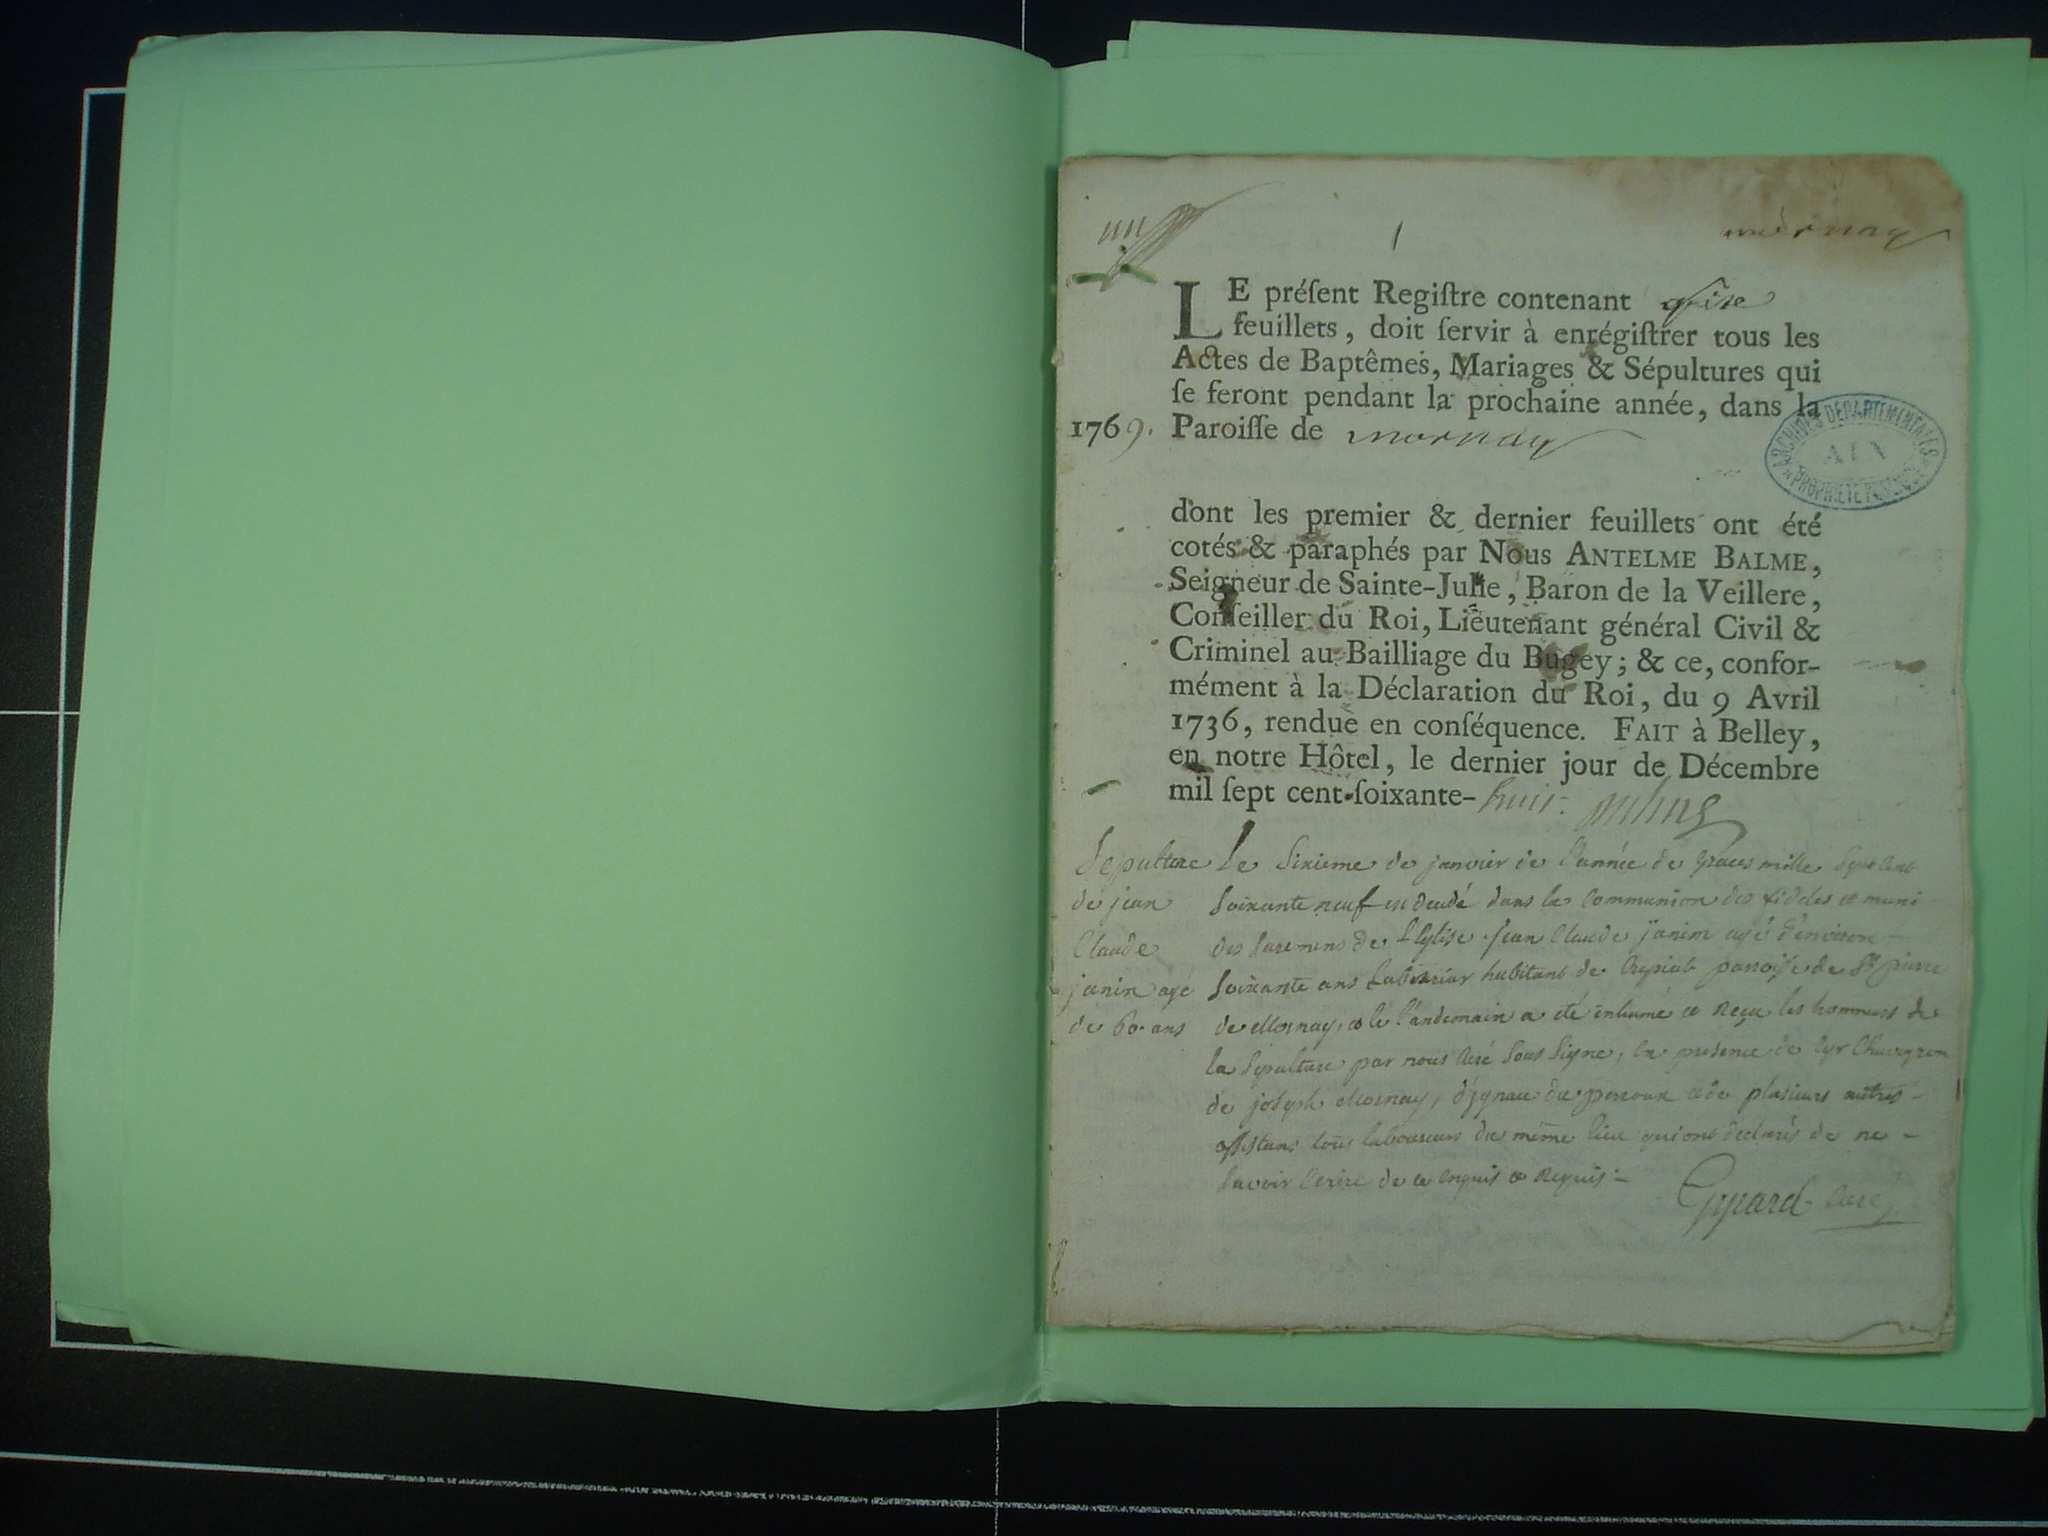 1
mornay
LE préſent Regiſtre contenant
feuillets, doit ſervir à enrégiſtrer tous les
Actes de Baptêmes, Mariages & Sépultures qui
ſe feront pendant la prochaine année, dans la
1769. Paroiſſe de mornay
ARCHIVES DEPARTEMENTALES
AIN
PROPRIÉTÉ
dont les premier & dernier feuillets ont été
cotés & paraphés par Nous ANTELME BALME,
Seigneur de Sainte-Julie, Baron de la Veillere,
Conſeiller du Roi, Lieutenant général Civil &
Criminel au Bailliage du Bugey; & ce, confor-
mément à la Déclaration du Roi, du 9 Avril
1736, rendue en conſéquence. FAIT à Belley,
en notre Hôtel, le dernier jour de Décembre
mil ſept cent ſoixante- huit.
Sepulture
de jean
Claude
janin agé
de 60. ans
Le Sixieme de janvier de l'année de graces mille Sept Cent
Soixante neuf est decedé dans la Communion des fideles et muni
des Sacremens de l'Eglise jean Claude janin agé d'environ
Soixante ans Laboureur habitant de Crepiat paroisse de St pierre
de Mornay, et le l'andemain a eté inhumé et Reçu les honneurs de
la Sepulture par nous Curé Sous Signé, en presence de Cyr Chaveyron
de joseph Mornay, d'ignace du perroux et de plusieurs autres
assistans tous laboureurs du même lieu qui ont declarés de ne
Savoir Ecrire de ce Enquis et Requis
Curé